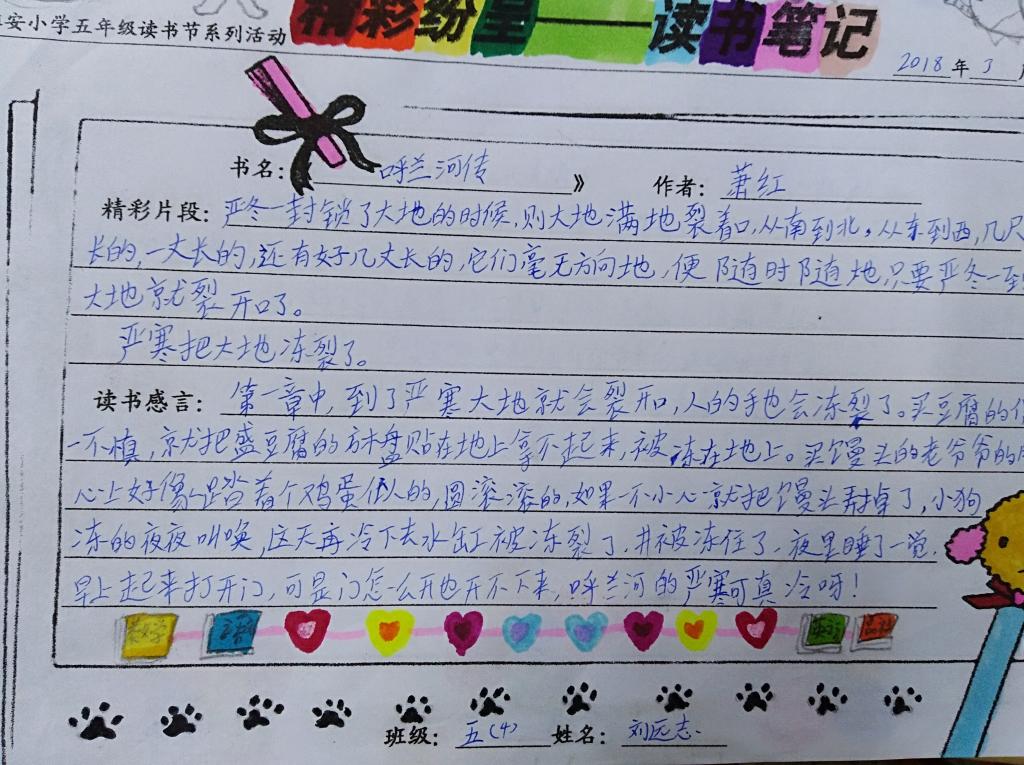 安小学五年级读书节系列活动
精彩纷呈——读书笔记
2018年3月
书名：呼兰河传》 作者：萧红
精彩片段：严冬一封锁了大地的时候，则大地满地裂着口，从南到北，从东到西，几尺
长的，一丈长的，还有好几丈长的，它们毫无方向地，便随时随地，只要严冬一到
大地就裂开口了。
严寒把大地冻裂了。
读书感言：第一章中，到了严寒大地就会裂开口，人的手也会冻裂了。买豆腐的
一不慎，就把盛豆腐的方木盘贴在地上拿不起来，被冻在地上。买馒头的老爷爷的
心上好像踏着个鸡蛋似的，圆滚滚的，如果一不小心就把馒头弄掉了，小狗
冻的夜夜叫唤，这天再冷下去水缸被冻裂了，井被冻住了，夜里睡了一觉，
早上起来打开门，可是门怎么开也开不下来，呼兰河的严寒可真冷呀！
班级：五(4) 姓名：刘远志